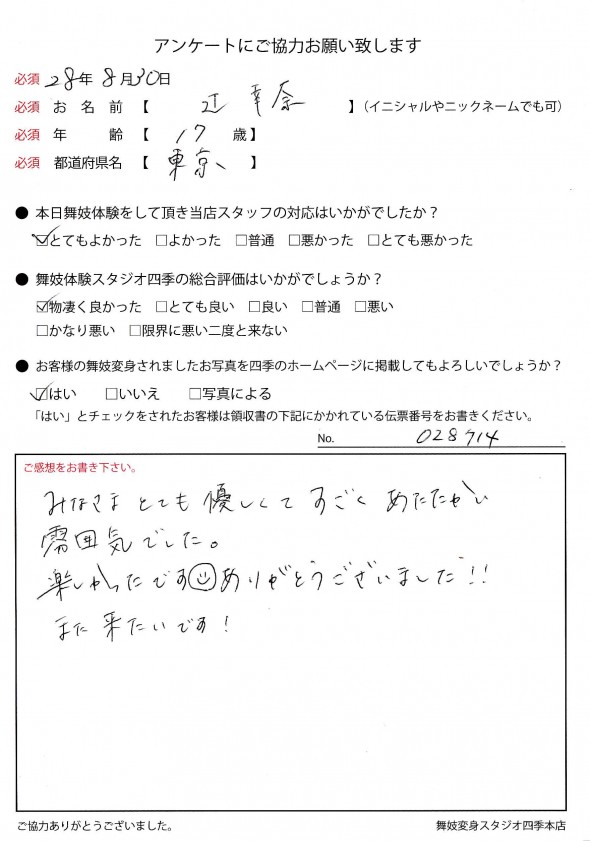 アンケートにご協力お願い致します
必須 28年 8月30日
必須 お名前 【 辻 幸奈 】（イニシャルやニックネームでも可）
必須 年齢 【 17 歳】
必須 都道府県名 【 東京、 】
● 本日舞妓体験をして頂き当店スタッフの対応はいかがでしたか？
☑とてもよかった □よかった □普通 □悪かった □とても悪かった
● 舞妓体験スタジオ四季の総合評価はいかがでしょうか？
☑物凄く良かった □とても良い □良い □普通 □悪い
□かなり悪い □限界に悪い二度と来ない
● お客様の舞妓変身されましたお写真を四季のホームページに掲載してもよろしいでしょうか？
☑はい □いいえ □写真による
「はい」とチェックをされたお客様は領収書の下記にかかれている伝票番号をお書きください。
No. 028714
ご感想をお書き下さい。
みなさま とても 優しくて すごく あたたかい
雰囲気でした。
楽しかったです☺ありがとうございました!!
また 来たいです！
ご協力ありがとうございました。
舞妓変身スタジオ四季本店